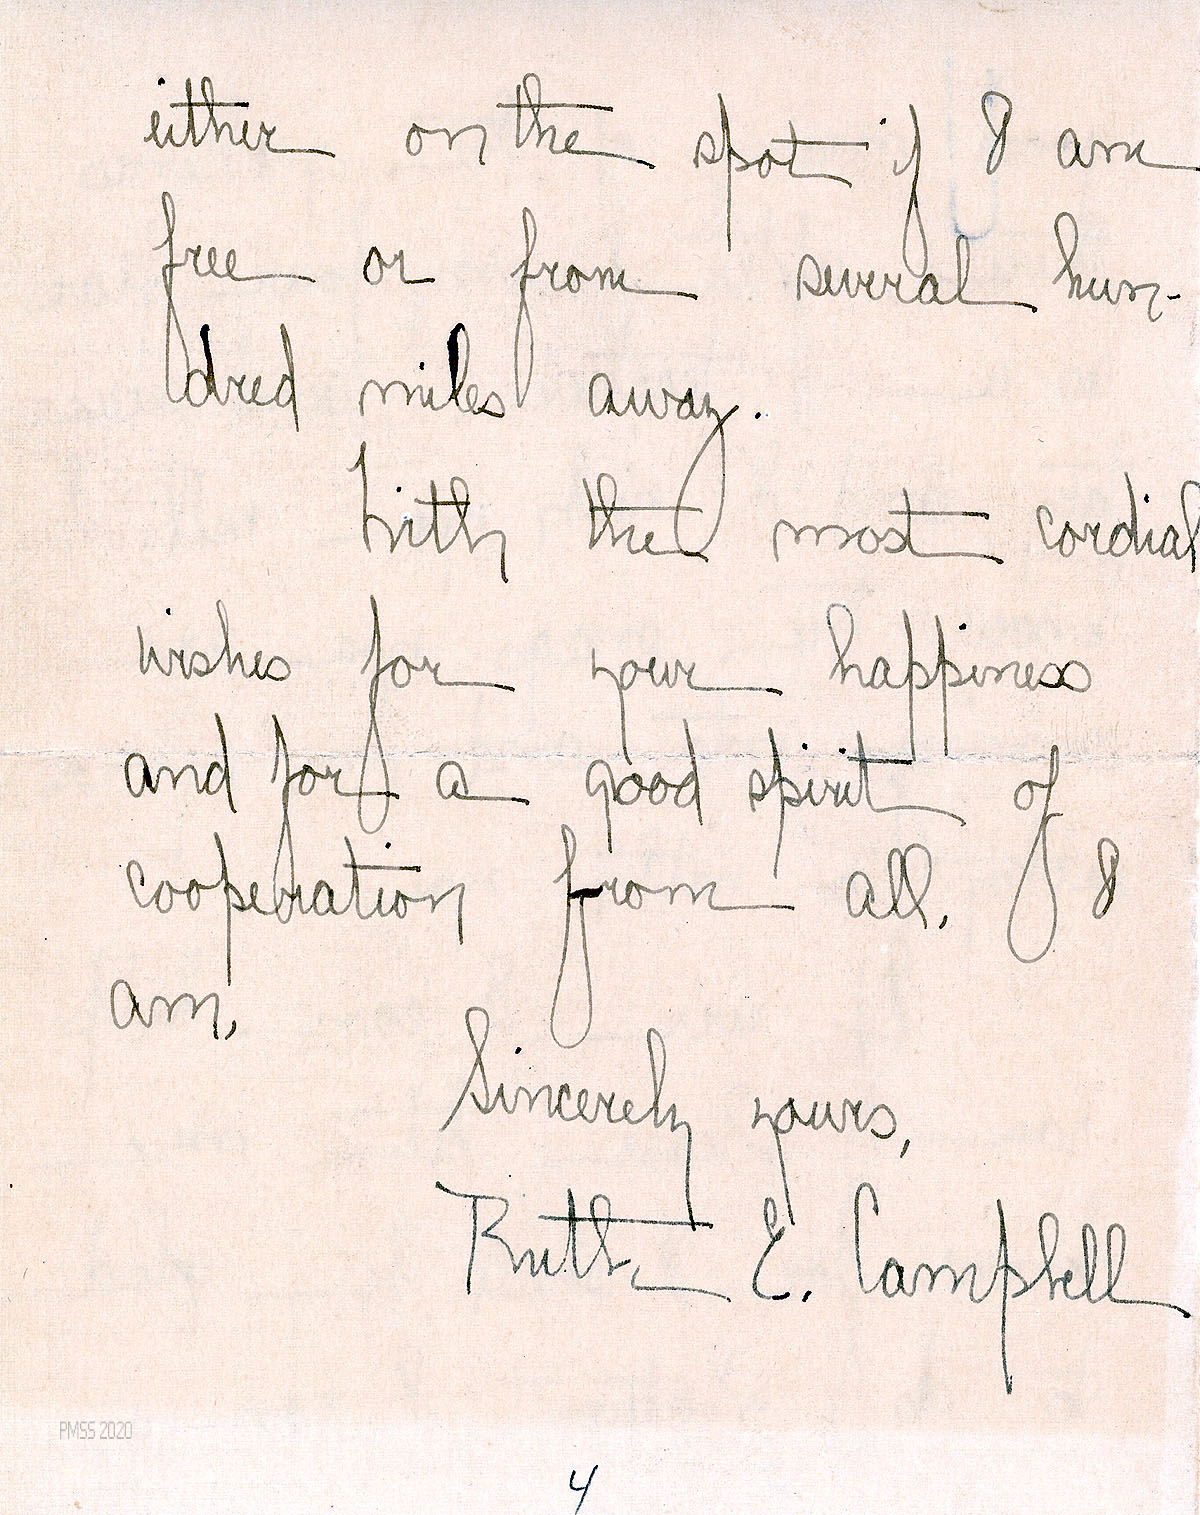 either on the spot if I am
free or from several hun-
dred miles away.
With the most cordial
wishes for your happiness
and for a good spirit of
cooperation from all, I
am,
Sincerely yours,
Ruth E. Campbell
PMSS 2020
4